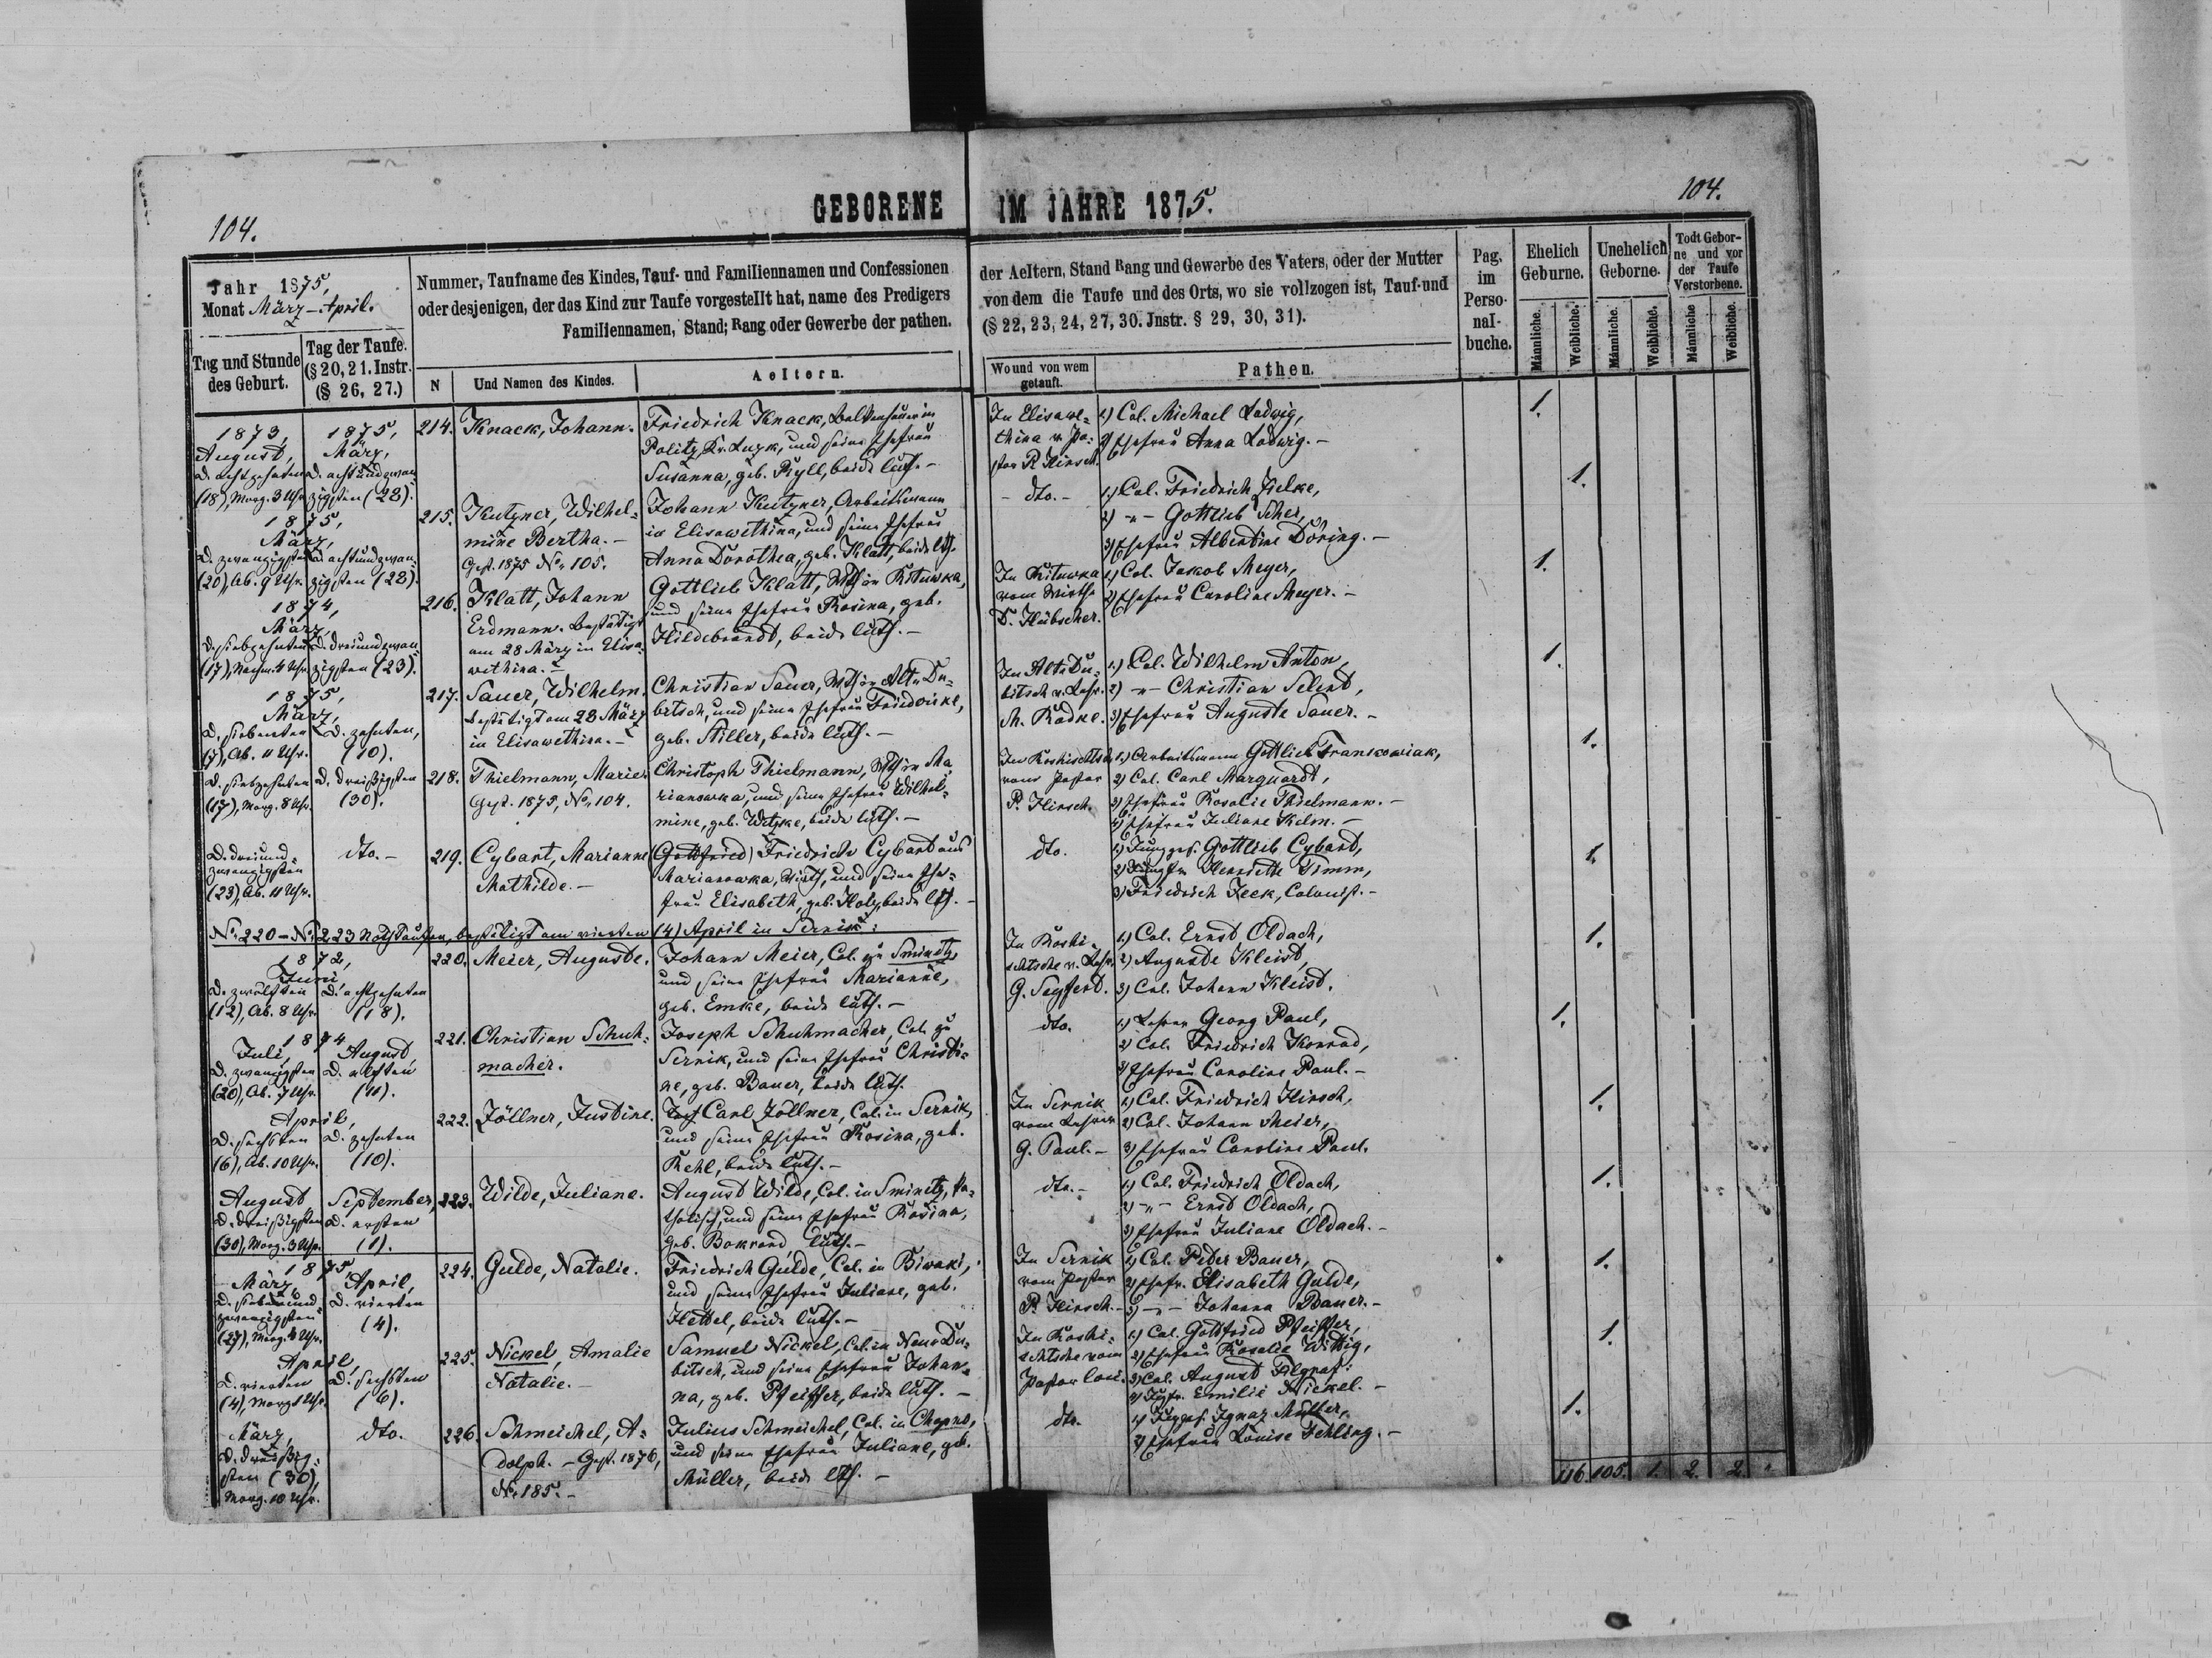 104.
GEBORENE IM JAHRE 1875.
104.
Jahr 1875,
Monat März-April.
Tag und Stunde
des Geburt.
Tag der Taufe.
(§ 20, 21. Instr.
(§ 26, 27.)
Nummer, Taufname des Kindes, Tauf- und Familiennamen und Confessionen
oder desjenigen, der das Kind zur Taufe vorgestellt hat, name des Predigers
Familiennamen, Stand; Rang oder Gewerbe der pathen.
N
Und Namen des Kindes.
Aeltern.
der Aeltern, Stand Rang und Gewerbe des Vaters, oder der Mutter
von dem die Taufe und des Orts, wo sie vollzogen ist, Tauf-und
(§ 22, 23, 24, 27, 30. Jnstr. § 29, 30, 31).
Wo und von wem
getauft.
Pathen.
Pag.
im
Perso-
nal-
buche.
Ehelich
Geburne.
Unehelich
Geborne.
Todt Gebor-
ne und vor
der Taufe
Verstorbene.
Männliche.
Weibliche.
Männliche.
Weibliche.
Männliche
Weibliche.
1873,
August,
d. achtzehnten
(18), Morg. 3 Uhr
1875,
März,
d. achtundzwan-
zigsten (28).
214.
Knack, Johann.
Friedrich Knack, in
Politz, Kr. Luzk, und seine Ehefrau
Susanna, geb. Ryll, beide luth. -
In Elisawe-
thina v. Pa-
stor P. Hirsch.
1) Col. Michael Ladwig,
2) Ehefrau Anna Ladwig. -
1.
1875,
März,
d. zwanzigsten
(20), Ab. 9 Uhr.
d. achtundzwan-
zigsten (28).
215.
Kutzner, Wilhel-
mine Bertha. -
Gest. 1875 No. 105.
Johann Kutzner, Arbeitsmann
in Elisawethina, und seine Ehefrau
Anna Dorothea, geb. Klatt, beide lth.
- dto. -
1) Col. Friedrich Zielke,
2) -"- Gottlieb Scher,
3) Ehefrau Albertine Döring. -
1.
1874,
März,
d. siebzehnten
(17), Nachm. 4 Uhr
d. dreiundzwan-
zigsten (23).
216.
Klatt, Johann
Erdmann. Bestätigt
am 28 März in Elisa-
wethina. -
Gottlieb Klatt, Wth in
und seine Ehefrau Rosina, geb.
Hildebrandt, beide luth. -
In
vom Wirth
D. Hübscher.
1) Col. Jakob Meyer,
2) Ehefrau Caroline Meyer. -
1.
1875,
März,
d. siebenten
(7), Ab. 11 Uhr.
d. zehnten,
(10).
217.
Sauer, Wilhelm.
bestätigt am 28 März
in Elisawethina. -
Christian Sauer, Wth in Alt-Du-
bitsch, und seine Ehefrau Friedricke,
geb. Stiller, beide luth. -
In Alt-Du-
bitsch v. Lehr.
M. Radke.
1) Col. Wilhelm Anton,
2) -"- Christian Selent,
3) Ehefrau Auguste Sauer. -
1.
d. siebzehnten
(17), Morg. 8 Uhr.
d. dreißigsten
(30).
218.
Thielmann, Marie.
Gest. 1875, No. 104.
Christoph Thielmann, Wth in Ma-
rianowka, und seine Ehefrau Wilhel-
mine, geb. Witzke, beide luth. -
In Roshischtsche
vom Pastor
P. Hirsch.
1) Arbeitsmann Gottlieb Frankowiak,
2) Col. Carl Marquardt,
3) Ehefrau Rosalie Thielmann. -
4) Ehefrau Juliane Kelm. -
1.
d. dreiund-
zwanzigsten
(23), Ab. 11 Uhr.
dto. -
219.
Cybart, Marianne
Mathilde. -
(Gottfried) Friedrich Cybart aus
Marianowka, Wirth, und seine Ehe-
frau Elisabeth, geb. Holz, beide lth. -
dto.
1) Jungges. Gottlieb Cybart,
2) Jungfr. Henriette Timm,
3) Friedrich Jeck, Colonist. -
1.
No. 220 - No. 223 Nothtaufen, bestätigt am vierten (4) April in Sernik:
1872,
Juni,
d. zwölften
(12), Ab. 8 Uhr.
d. achtzehnten
(18).
220.
Meier, Auguste.
Johann Meier, Col. zu Sminetz
und seine Ehefrau Marianne,
geb. Emke, beide luth. -
In Roshi-
schtsche v. Lehr.
G. Seyfert.
1) Col. Ernst Oldach,
2) Auguste Kleist,
3) Col. Johann Kleist.
1.
1874,
Juli,
d. zwanzigsten
(20), Ab. 7 Uhr.
August,
d. elften
(11).
221.
Christian Schuh-
macher.
Joseph Schuhmacher, Col. zu
Sernik, und seine Ehefrau Christi-
ne, geb. Bauer, beide luth.
dto.
1) Lehrer Georg Paul,
2) Col. Friedrich Konrad,
3) Ehefrau Caroline Paul. -
1.
April,
d. sechsten
(6), Ab. 10 Uhr.
d. zehnten
(10).
222.
Zöllner, Justine.
Carl Zöllner, Col. in Sernik,
und seine Ehefrau Rosina, geb.
Kehl, beide luth. -
In Sernik
vom Lehrer
G. Paul. -
1) Col. Friedrich Hirsch,
2) Col. Johann Meier,
3) Ehefrau Caroline Paul.
1.
August
d. dreißigsten
(30), Morg. 3 Uhr.
September,
d. ersten
(1).
223.
Wilde, Juliane.
August Wilde, Col. in Sminetz, ka-
tholisch, und seine Ehefrau Rosina,
geb. luth. -
dto. -
1) Col. Friedrich Oldach,
2) -"- Ernst Oldach,
3) Ehefrau Juliane Oldach. -
1.
1875
März,
d. siebenund-
zwanzigsten
(27), Morg. 4 Uhr.
April,
d. vierten
(4).
224.
Gulde, Natalie.
Friedrich Gulde, Col. in Biwaki,
und seine Ehefrau Juliane, geb.
Hettel, beide luth. -
In Sernik
vom Pastor
P. Hirsch. -
1) Col. Peter Bauer,
2) Ehefr. Elisabeth Gulde,
3) -"- Johanna Bauer. -
1.
April,
d. vierten
(4), Morg. 1 Uhr.
d. sechsten
(6).
225.
Nickel, Amalie
Natalie. -
Samuel Nickel, Col. in Neu-Du-
bitsch, und seine Ehefrau Johan-
na, geb. Pfeiffer, beide luth. -
In Roshi-
schtsche vom
Pastor loci.
1) Col. Gottfried Pfeiffer,
2) Ehefrau Rosalie Wittig,
3) Col. August
4) Jgfr. Emilie Nickel. -
1.
März,
d. dreißig-
sten (30),
Morg. 10 Uhr.
dto.
226.
Schmeichel, A-
dolph. - Gest. 1876,
No. 185. -
Julius Schmeichel, Col. in Chopno,
und seine Ehefrau Juliane, geb.
Müller, beide lth. -
dto.
1) Jungges. Ignaz Müller,
2) Ehefrau Louise Fehling. -
1.
116. 105. 1. 2. 2.